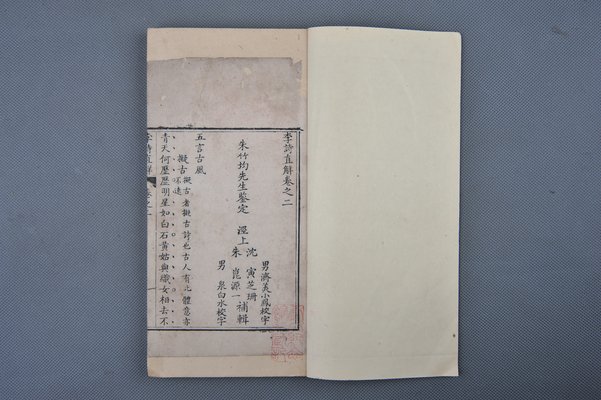 李詩直解卷之二
男濟美小鳳校字
沈寅芝珊
朱竹均先生鑒定 涇上 補輯
朱崑源一
男泉白水校字
五言古風
擬古 擬古者擬古詩也古人有此體意亦深遠
青天何歷歷明星如白石黃姑與織女相去不
李詩直解 卷之二